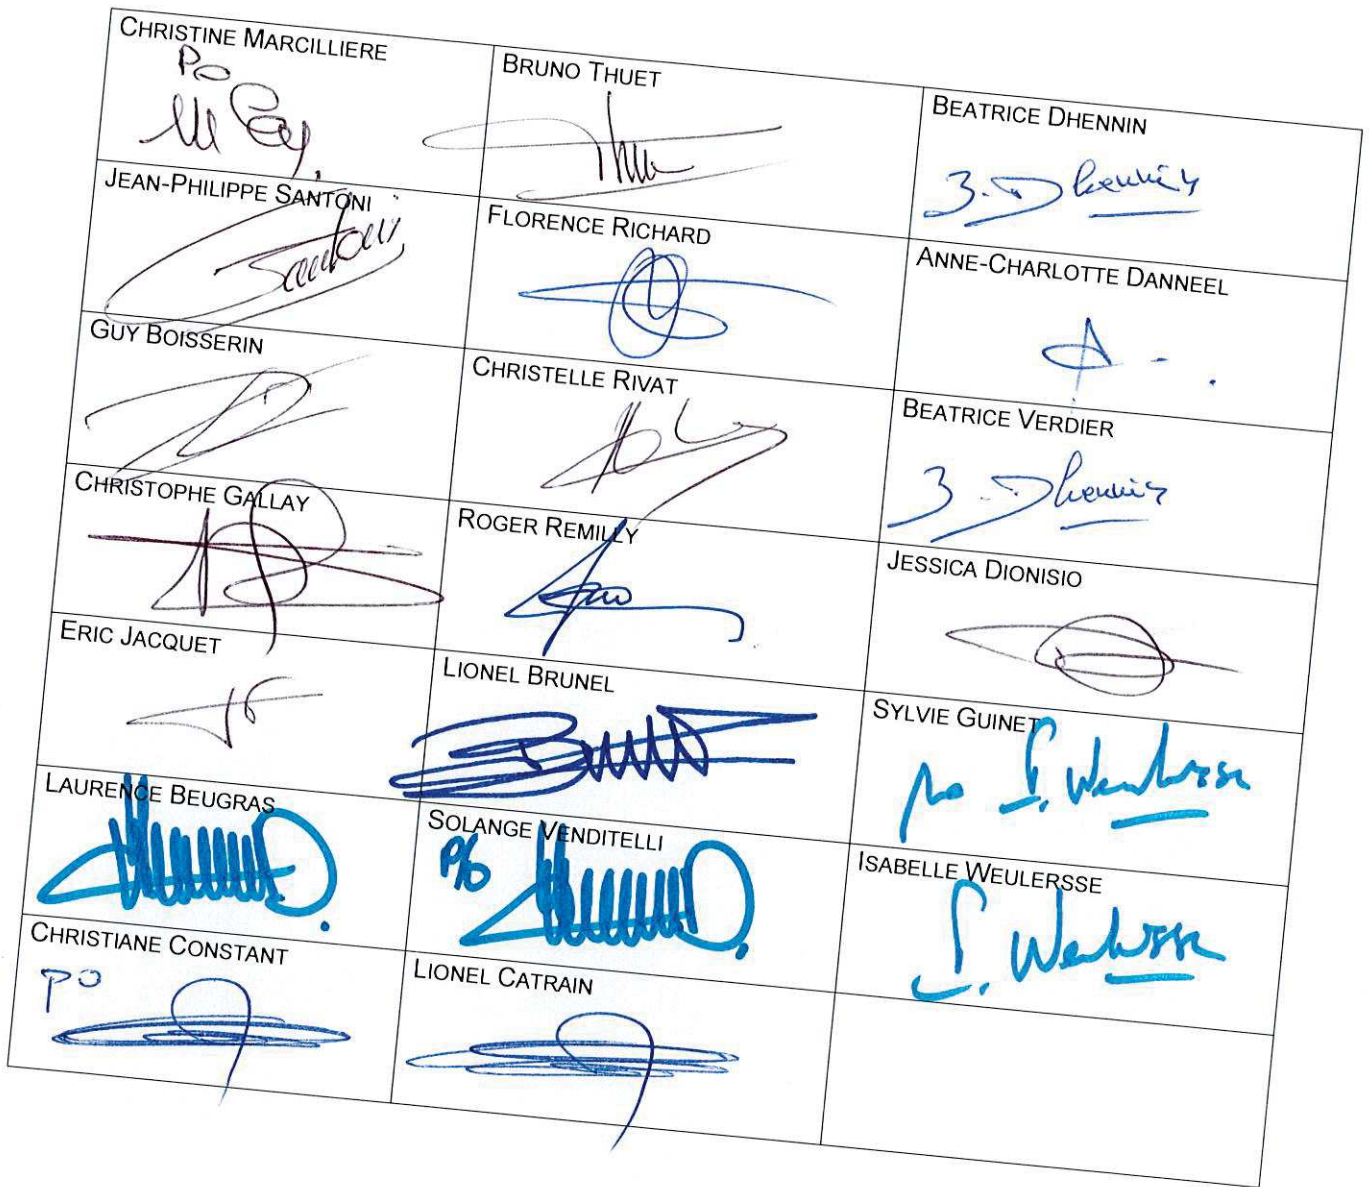 CHRISTINE MARCILLIERE
PO
BRUNO THUET
BEATRICE DHENNIN
B. Dhennin
JEAN-PHILIPPE SANTONI
Santoni
FLORENCE RICHARD
ANNE-CHARLOTTE DANNEEL
GUY BOISSERIN
CHRISTELLE RIVAT
BEATRICE VERDIER
B. Dhennin
CHRISTOPHE GALLAY
ROGER REMILLY
JESSICA DIONISIO
ERIC JACQUET
LIONEL BRUNEL
SYLVIE GUINET
po I. Weulersse
LAURENCE BEUGRAS
SOLANGE VENDITELLI
P/o
ISABELLE WEULERSSE
I. Weulersse
CHRISTIANE CONSTANT
PO
LIONEL CATRAIN